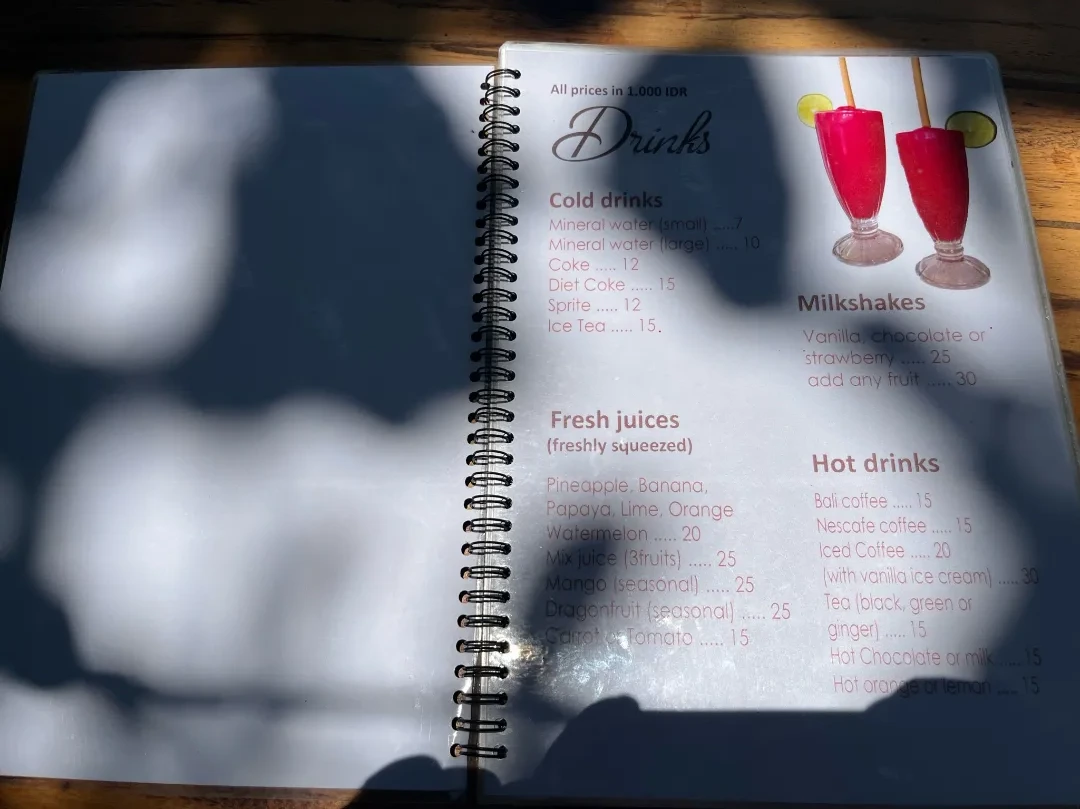 All prices in 1.000 IDR
Drinks
Cold drinks
Mineral water (small) .....7
Mineral water (large) ..... 10
Coke ..... 12
Diet Coke ..... 15
Sprite ..... 12
Ice Tea ..... 15.
Fresh juices
(freshly squeezed)
Pineapple, Banana,
Papaya, Lime, Orange
Watermelon ..... 20
Mix juice (3fruits) ..... 25
Mango (seasonal) ..... 25
Dragonfruit (seasonal) ..... 25
Carrot or Tomato ..... 15
Milkshakes
Vanilla, chocolate or
strawberry ..... 25
add any fruit ..... 30
Hot drinks
Bali coffee ..... 15
Nescafe coffee ..... 15
Iced Coffee ..... 20
(with vanilla ice cream) ..... 30
Tea (black, green or
ginger) ..... 15
Hot Chocolate or milk ..... 15
Hot orange or lemon ..... 15